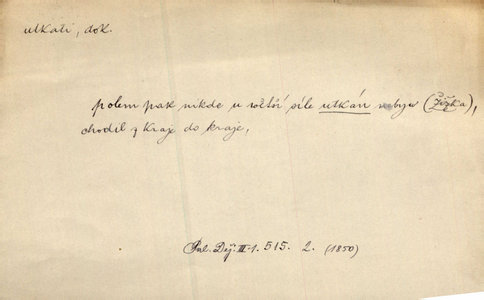 utkati, dok.
polem pak nikde u větší síle utkán nebyw (Žižka),
chodil z kraje do kraje,
Pal. Děj. III. 1. 515. 2. (1850)